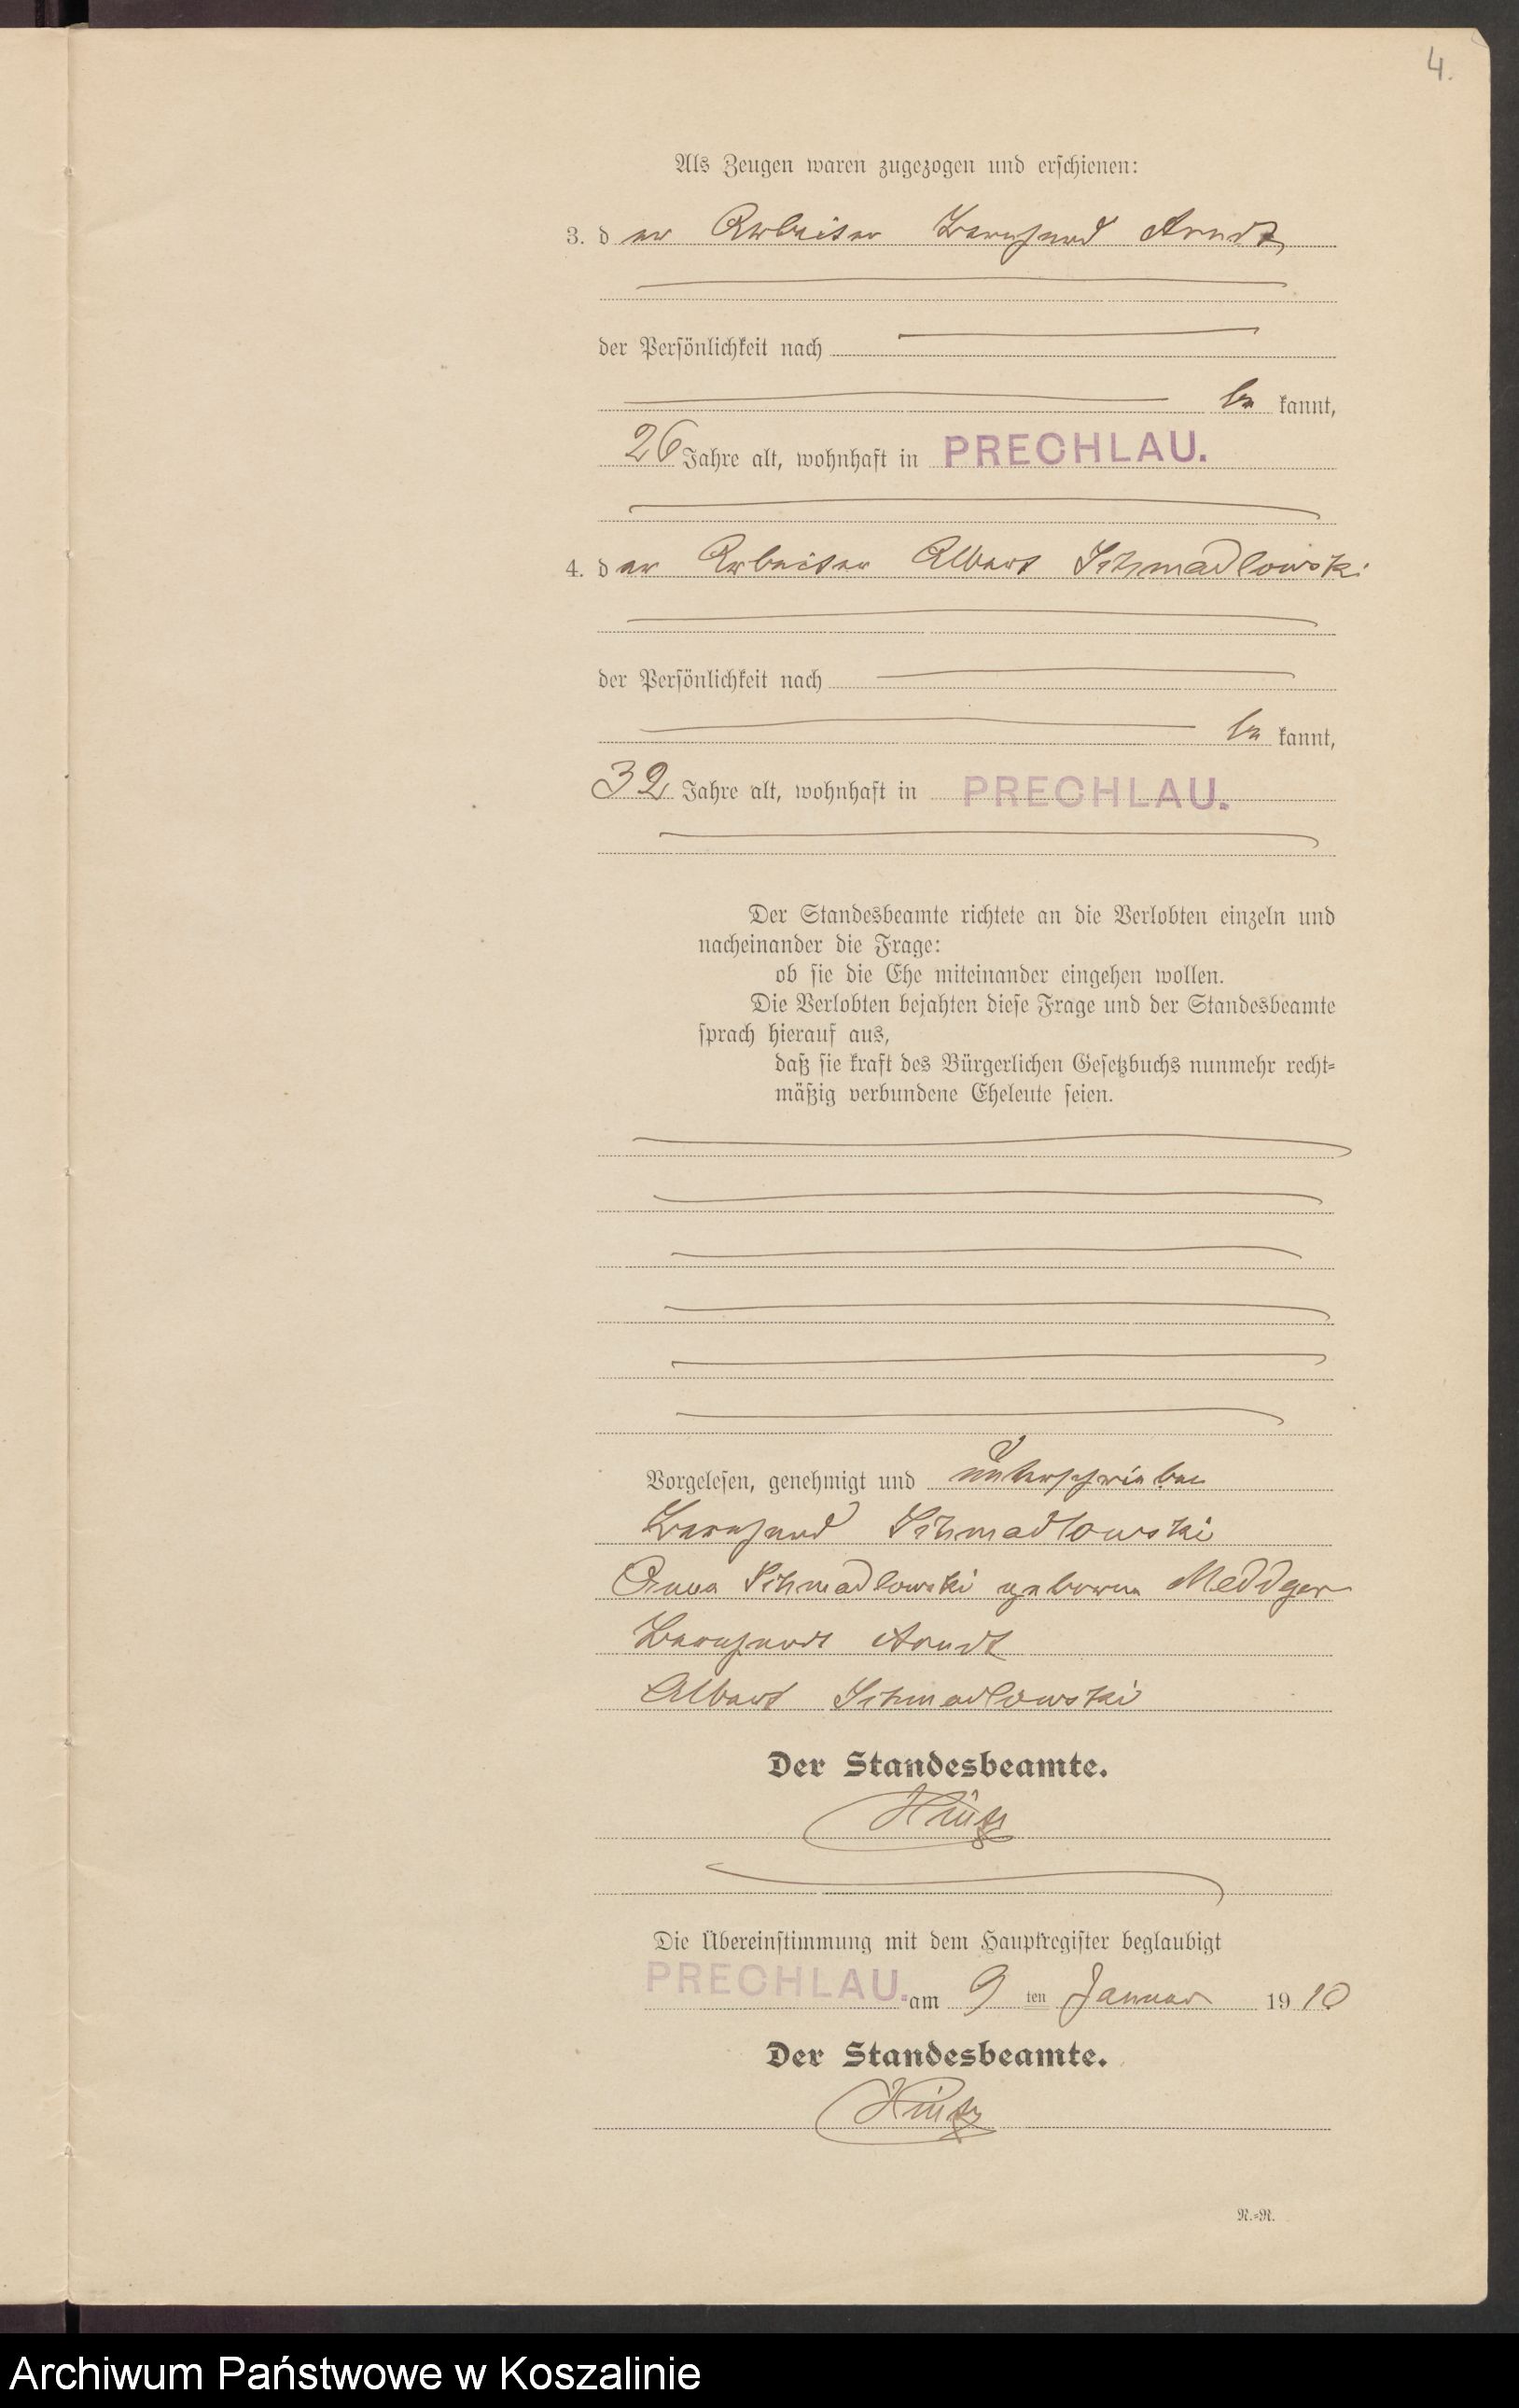 4.
Als Zeugen waren zugezogen und erschienen:
3. der Arbeiter Bernhard Arndt
der Persönlichkeit nach
bekannt,
26 Jahre alt, wohnhaft in PRECHLAU.
4. der Arbeiter Albert Schmadlowski
der Persönlichkeit nach
bekannt,
32 Jahre alt, wohnhaft in PRECHLAU.
Der Standesbeamte richtete an die Verlobten einzeln und
nacheinander die Frage:
ob sie die Ehe miteinander eingehen wollen.
Die Verlobten bejahten diese Frage und der Standesbeamte
sprach hierauf aus,
daß sie kraft des Bürgerlichen Gesetzbuchs nunmehr recht-
mäßig verbundene Eheleute seien.
Vorgelesen, genehmigt und unterschrieben
Bernhard Schmadlowski
Anna Schmadlowski geborene Meddger
Bernhardt Arndt
Albert Schmadlowski
Der Standesbeamte.
Die Übereinstimmung mit dem Hauptregister beglaubigt
PRECHLAU. am 9 ten Januar 1910
Der Standesbeamte.
R.-R.
Archiwum Państwowe w Koszalinie